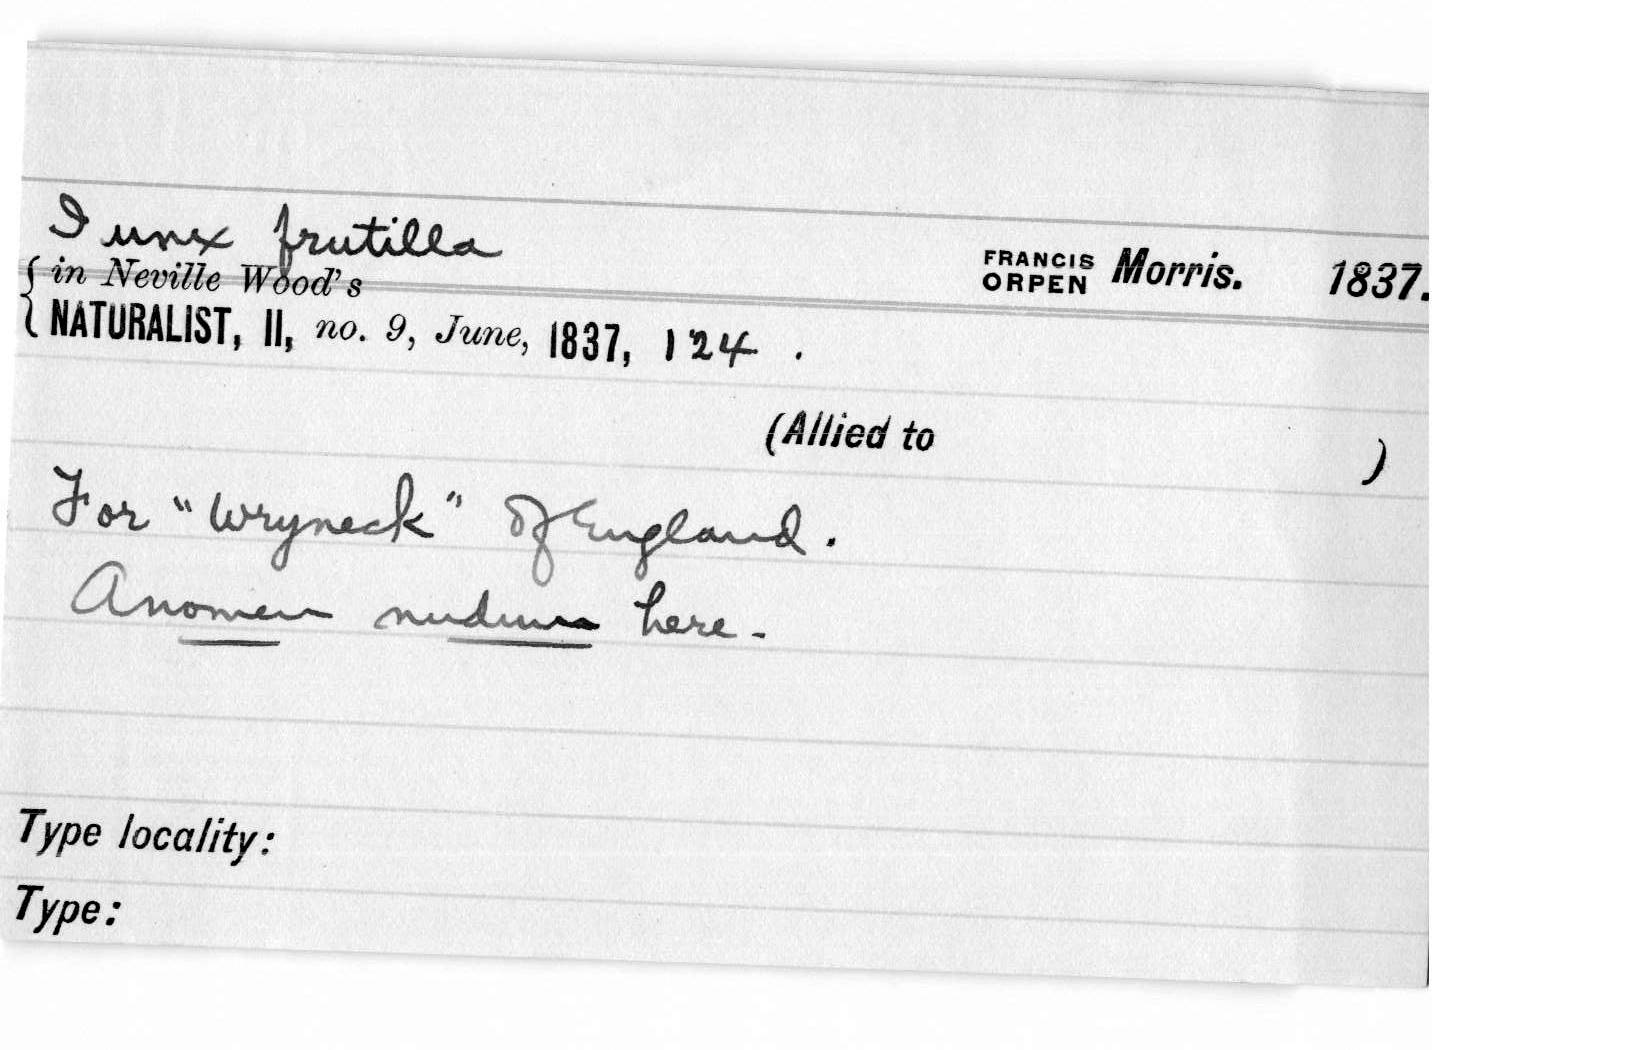 Iunx frutilla
FRANCIS ORPEN Morris. 1837.
{ in Neville Wood's
NATURALIST, II, no. 9, June, 1837, 124 .
(Allied to )
For "Wryneck" of England.
A nomen nudum here.
Type locality:
Type: